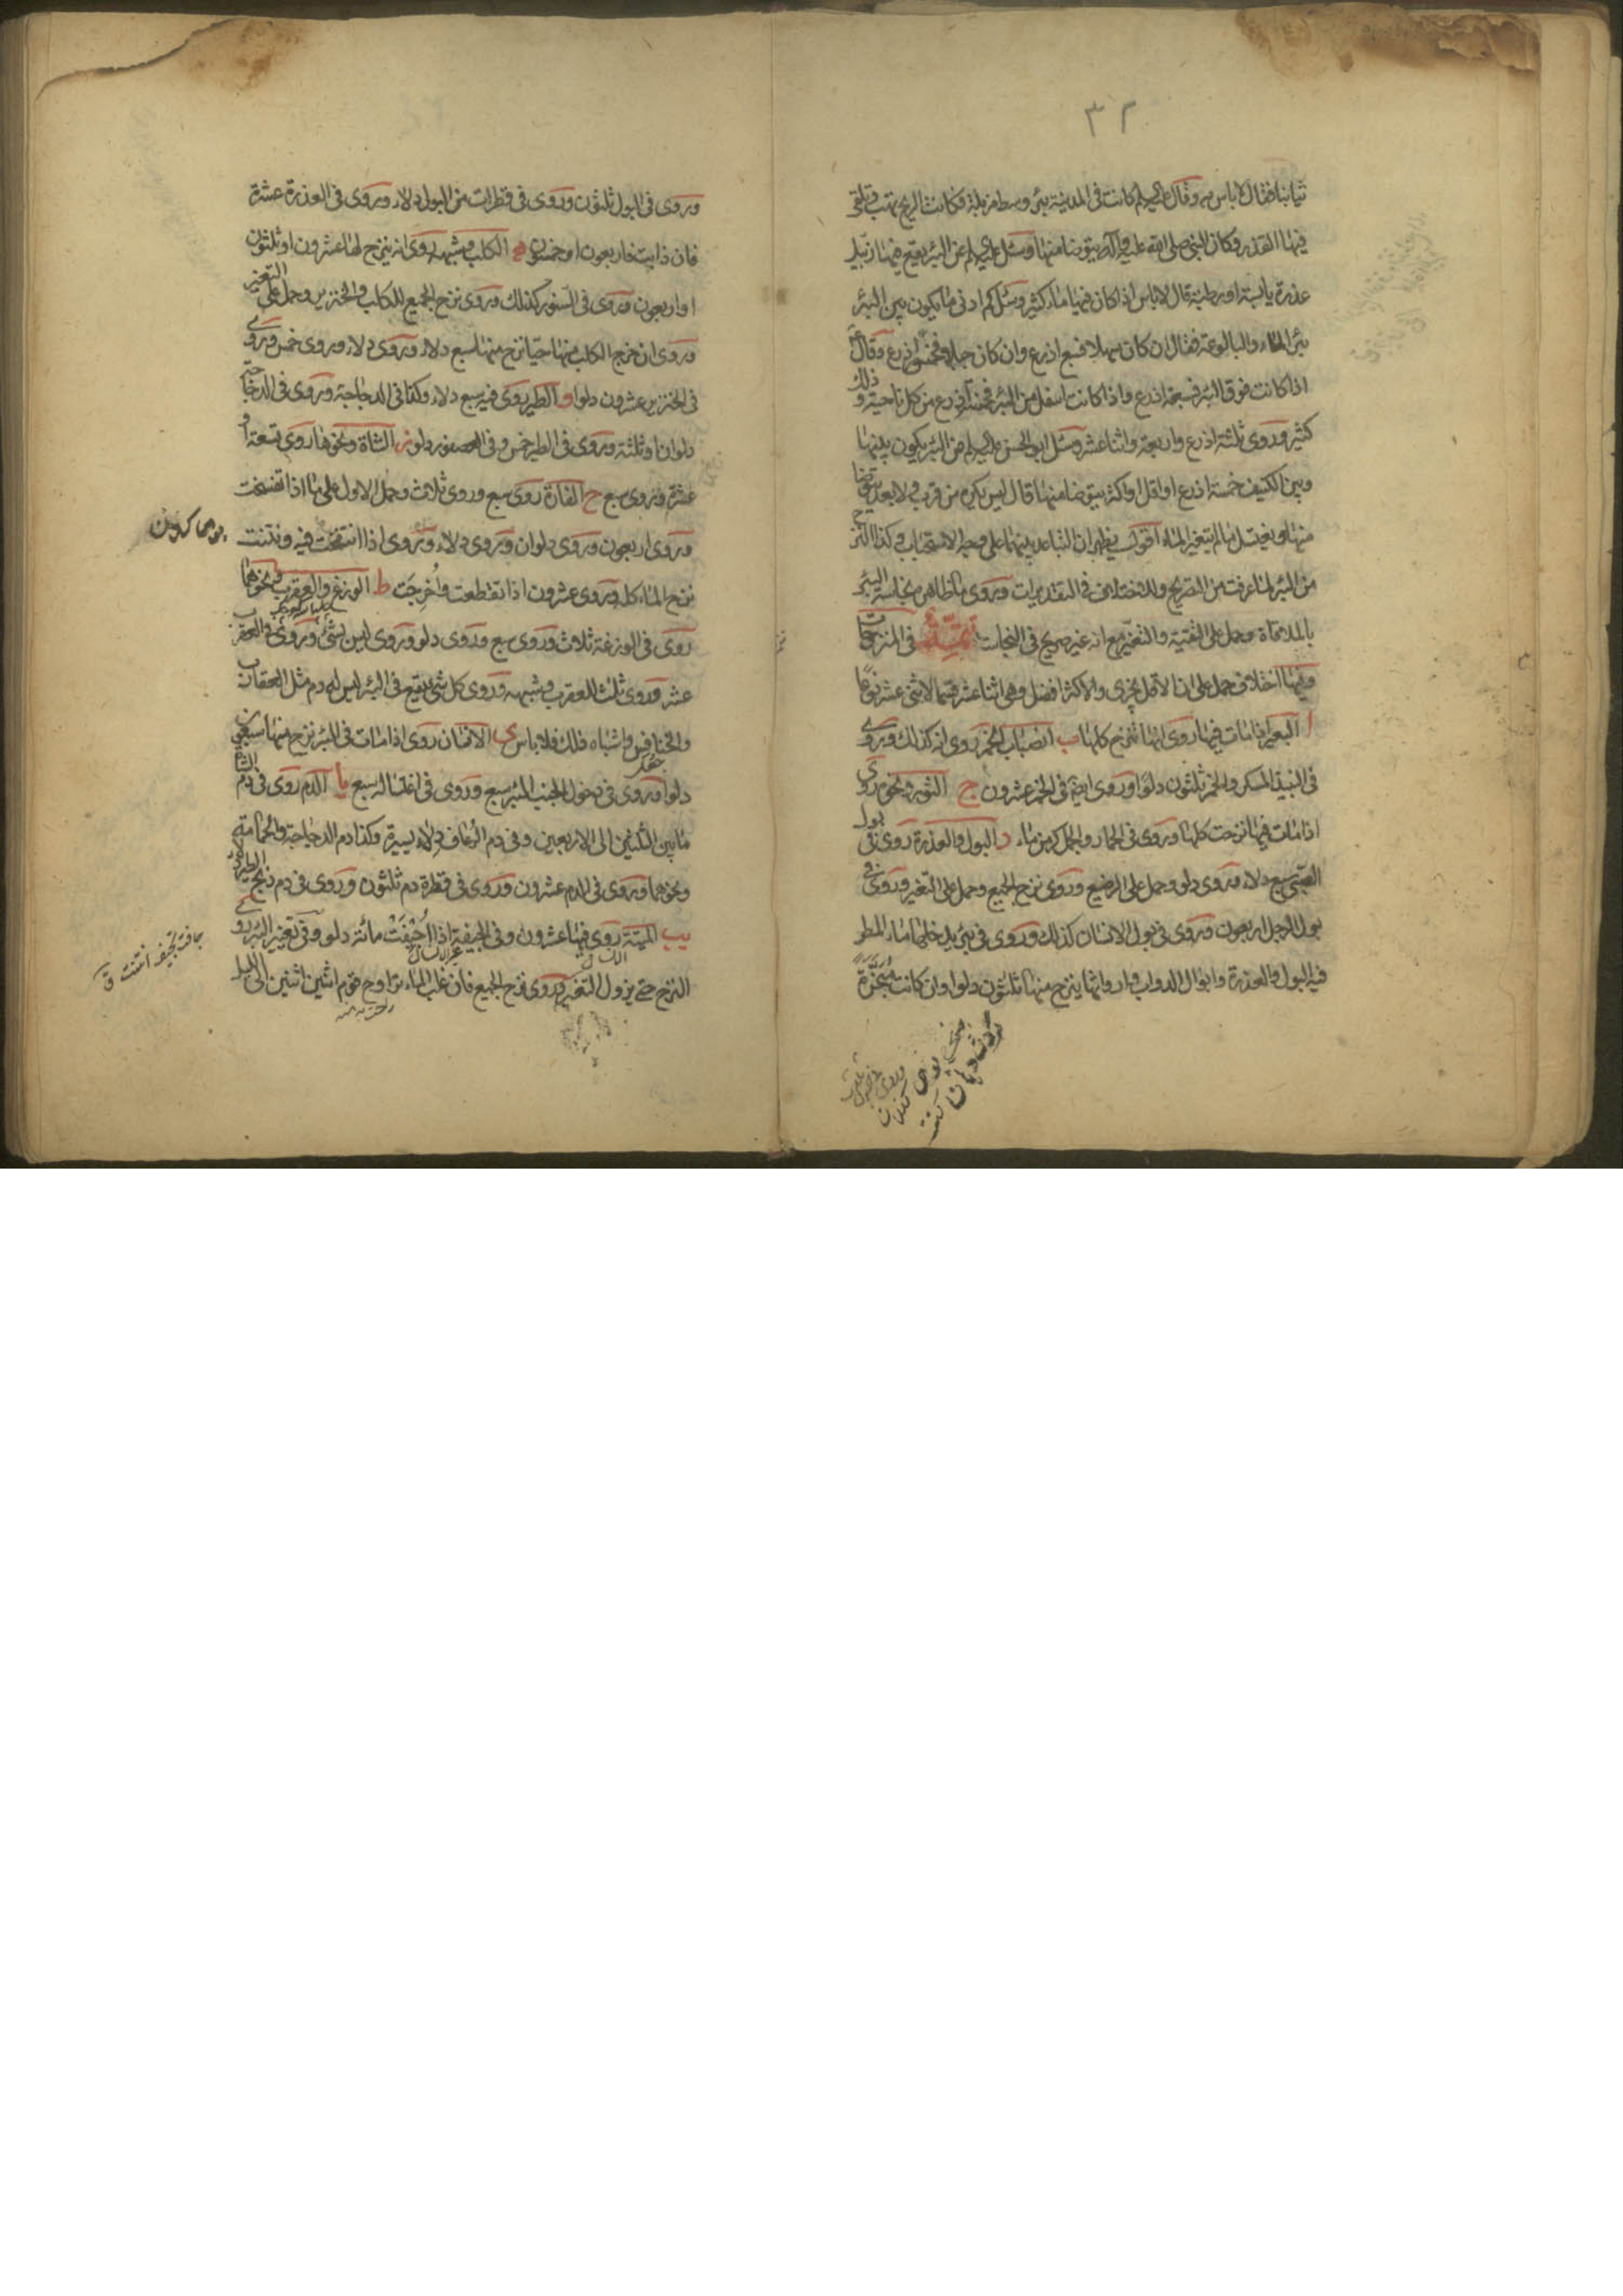 ٣٢
ثيابنا فقال لا باس به وقال عليه السلم كانت في المدينة بئر وسط مزبلة فكانت الريح تهب وتلقي
فيها القذر وكان النبي صلى الله عليه وآله يتوضا منها وسئل عليه السلم عن البئر يقع فيها زنبيل
عذرة يابسة او رطبة قال لا باس اذا كان فيها ماء كثير وسئل كم ادنى ما يكون بين البئر
بئر الماء والبالوعة فقال ان كان سهلا فسبع اذرع وان كان جبلا فخمس اذرع وقال
اذا كانت فوق البئر فسبعة اذرع واذا كانت اسفل من البئر فخمسة اذرع من كل ناحية وذلك
كثير وروى ثلثة اذرع واربعة واثنا عشر وسئل ابو الحسن عليه السلم عن البئر يكون بينها
وبين الكنيف خمسة اذرع او اقل او اكثر يتوضا منها قال ليس يكره من قرب ولا بعد يتوضا
منها ويغتسل ما لم يتغير الماء اقول يظهر ان التباعد بينهما على وجه الاستحباب وكذا النزح
من البئر لما عرفت من التصريح وللاختلاف في التقديرات وروى ما ظاهره نجاسة البئر
بالملاقاة وحمل على التقية والتغير مع انه غير صريح في النجاسة تتمة في المنزوحات
وفيها اختلاف حمل على ان الاقل يجزي والاكثر افضل وهي اثنا عشر قسما لاثنى عشر نوعا
ا البعير اذا مات فيها روى انها تنزح كلها ب انصباب الخمر روى انه كذلك وروى
في النبيذ المسكر والخمر ثلثون دلوا وروى ايضا في الخمر عشرون ج الثور ونحوه روى
اذا مات فيها نزحت كلها وروى في الحمار والجمل كر من ماء د البول والعذرة روى في بول
الصبي سبع دلاء وروى دلو وحمل على الرضيع وروى نزح الجميع وحمل على التغير وروى في
بول الرجل اربعون وروى في بول الانسان كذلك وروى في بئر يدخلها ماء المطر
فيه البول والعذرة وابوال الدواب وارواثها ينزح منها ثلثون دلوا وان كانت مبخرة
وروى في البول ثلثون وروى في قطرات من البول دلاء وروى في العذرة عشرة
فان ذابت فاربعون او خمسون ه الكلب وشبهه روى انه ينزح لها عشرون او ثلثون
او اربعون وروى في السنور كذلك وروى نزح الجميع للكلب والخنزير وحمل على التغير
وروى ان خرج الكلب منها حيا نزح منها سبع دلاء وروى دلاء وروى خمس وروى
في الخنزير عشرون دلوا و الطير روى فيه سبع دلاء وكذا في الدجاجة وروى في الدجاجة
دلوان او ثلثة وروى في الطير خمس وفي العصفور دلو ز الشاة ونحوها روى تسعة او
عشرة وروى سبع ح الفارة روى سبع وروى ثلاث وحمل الاول على ما اذا تفسخت
وروى اربعون وروى دلوان وروى دلاء وروى اذا انتفخت فيه ونتنت
نزح الماء كله وروى عشرون اذا تقطعت واخرجت ط الوزغ والعقرب ونحوها
روى في الوزغة ثلاث وروى سبع وروى دلو وروى ليس بشئ وروى في العقرب
عشر وروى ثلث للعقرب وشبهه وروى كل شئ يقع في البئر ليس له دم مثل العقارب
والخنافس واشباه ذلك فلا باس ى الانسان روى اذا مات في البئر نزح منها سبعين
دلوا وروى في دخول الجنب البئر سبع وروى في اغتساله سبع يا الدم روى في دم الشاة
ما بين الثلثين الى الاربعين وفي دم الرعاف دلاء يسيرة وكذا دم الدجاجة والحمامة
ونحوهما وروى في الدم عشرون وروى في قطرة دم ثلثون وروى في دم ذبح الطير دلاء
يب الميتة روى فيها عشرون وفي الجيفة اذا اجيفت مائة دلو وفي تغير البئر روى
النزح حتى يزول التغير وروى نزح الجميع فان غلب الماء تراوح قوم اثنين اثنين الى الليل